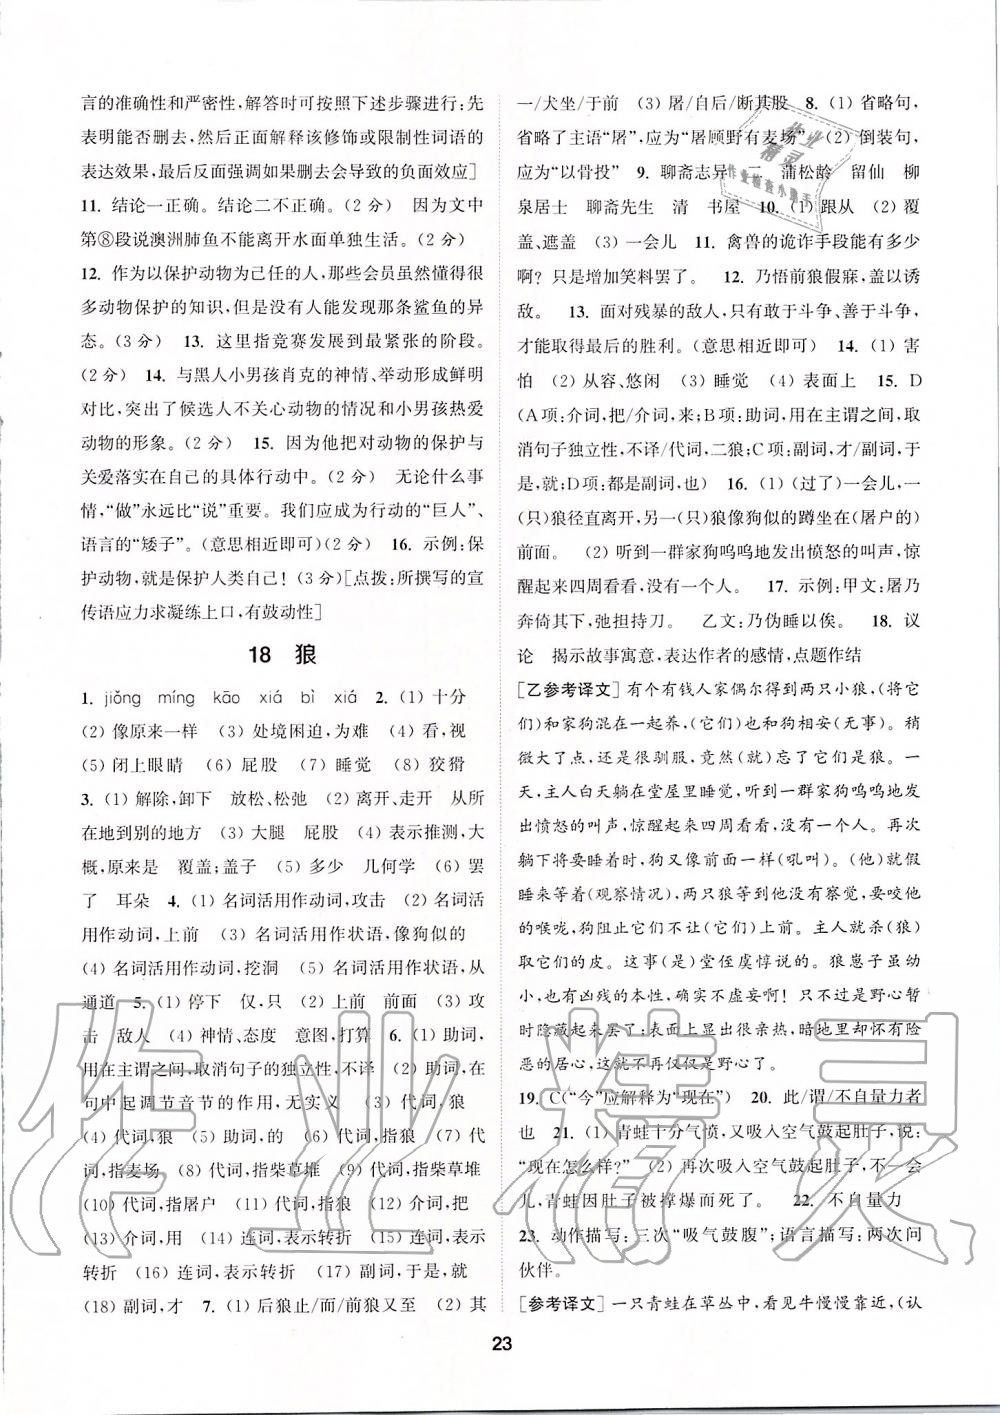 言的准确性和严密性,解答时可按照下述步骤进行:先
表明能否删去,然后正面解释该修饰或限制性词语的
表达效果,最后反面强调如果删去会导致的负面效应]
11. 结论一正确。结论二不正确。(2分) 因为文中
第⑧段说澳洲肺鱼不能离开水面单独生活。(2分)
12. 作为以保护动物为己任的人,那些会员虽然懂得很
多动物保护的知识,但是没有人能发现那条鲨鱼的异
态。(3分) 13. 这里指竞赛发展到最紧张的阶段。
(2分) 14. 与黑人小男孩肖克的神情、举动形成鲜明
对比,突出了候选人不关心动物的情况和小男孩热爱
动物的形象。(2分) 15. 因为他把对动物的保护与
关爱落实在自己的具体行动中。(2分) 无论什么事
情,“做”永远比“说”重要。我们应成为行动的“巨人”、
语言的“矮子”。(意思相近即可)(2分) 16. 示例:保
护动物,就是保护人类自己!(3分)[点拨:所撰写的宣
传语应力求凝练上口,有鼓动性]
18 狼
1. jiǒng míng kāo xiá bì xiá 2. (1) 十分
(2) 像原来一样 (3) 处境困迫,为难 (4) 看,视
(5) 闭上眼睛 (6) 屁股 (7) 睡觉 (8) 狡猾
3. (1) 解除,卸下 放松、松弛 (2) 离开、走开 从所
在地到别的地方 (3) 大腿 屁股 (4) 表示推测,大
概,原来是 覆盖;盖子 (5) 多少 几何学 (6) 罢
了 耳朵 4. (1) 名词活用作动词,攻击 (2) 名词活
用作动词,上前 (3) 名词活用作状语,像狗似的
(4) 名词活用作动词,挖洞 (5) 名词活用作状语,从
通道 5. (1) 停下 仅,只 (2) 上前 前面 (3) 攻
击 敌人 (4) 神情、态度 意图,打算 6. (1) 助词,
用在主谓之间,取消句子的独立性,不译 (2) 助词,在
句中起调节音节的作用,无实义 (3) 代词,狼
(4) 代词,狼 (5) 助词,的 (6) 代词,狼 (7) 代
词,指麦场 (8) 代词,指柴草堆 (9) 代词,指柴草堆
(10) 代词,指屠户 (11) 代词,指狼 (12) 介词,把
(13) 介词,用 (14) 连词,表示转折 (15) 连词,表示
转折 (16) 连词,表示转折 (17) 副词,于是,就
(18) 副词,才 7. (1) 后狼止/而/前狼又至 (2) 其
一/犬坐/于前 (3) 屠/自后/断其股 8. (1) 省略句,
省略了主语“屠”,应为“屠顾野有麦场” (2) 倒装句,
应为“以骨投” 9. 聊斋志异 二 蒲松龄 留仙 柳
泉居士 聊斋先生 清 书屋 10. (1) 跟从 (2) 覆
盖、遮盖 (3) 一会儿 11. 禽兽的诡诈手段能有多少
啊?只是增加笑料罢了。 12. 乃悟前狼假寐,盖以诱
敌。 13. 面对残暴的敌人,只有敢于斗争、善于斗争,
才能取得最后的胜利。(意思相近即可) 14. (1) 害
怕 (2) 从容、悠闲 (3) 睡觉 (4) 表面上 15. D
(A项:介词,把/介词,来;B项:助词,用在主谓之间,取
消句子独立性,不译/代词,二狼;C项:副词,才/副词,于
是,就;D项:都是副词,也) 16. (1) (过了)一会儿,一
(只)狼径直离开,另一(只)狼像狗似的蹲坐在(屠户的)
前面。 (2) 听到一群家狗呜呜地发出愤怒的叫声,惊
醒起来四周看看,没有一个人。 17. 示例:甲文:屠乃
奔倚其下,弛担持刀。 乙文:乃伪睡以俟。 18. 议
论 揭示故事寓意,表达作者的感情,点题作结
[乙参考译文] 有个有钱人家偶尔得到两只小狼,(将它
们)和家狗混在一起养,(它们)也和狗相安(无事)。稍
微大了点,还是很驯服,竟然(就)忘了它们是狼。一
天,主人白天躺在堂屋里睡觉,听到一群家狗呜呜地发
出愤怒的叫声,惊醒起来四周看看,没有一个人。再次
躺下将要睡着时,狗又像前面一样(吼叫)。(他)就假
睡来等着(观察情况),两只狼等到他没有察觉,要咬他
的喉咙,狗阻止它们不让(它们)上前。主人就杀(狼)
取它们的皮。这事(是)堂侄虞惇说的。狼崽子虽幼
小,也有凶残的本性,确实不虚妄啊!只不过是野心暂
时隐藏起来罢了;表面上显出很亲热,暗地里却怀有险
恶的居心,这就不再仅仅是野心了。
19. C(“今”应解释为“现在”) 20. 此/谓/不自量力者
也 21. (1) 青蛙十分气愤,又吸入空气鼓起肚子,说:
“现在怎么样?” (2) 再次吸入空气鼓起肚子,不一会
儿,青蛙因肚子被撑爆而死了。 22. 不自量力
23. 动作描写:三次“吸气鼓腹”;语言描写:两次问
伙伴。
[参考译文] 一只青蛙在草丛中,看见牛慢慢靠近,(认
23
作业精灵
作业检查小帮手
作业精灵